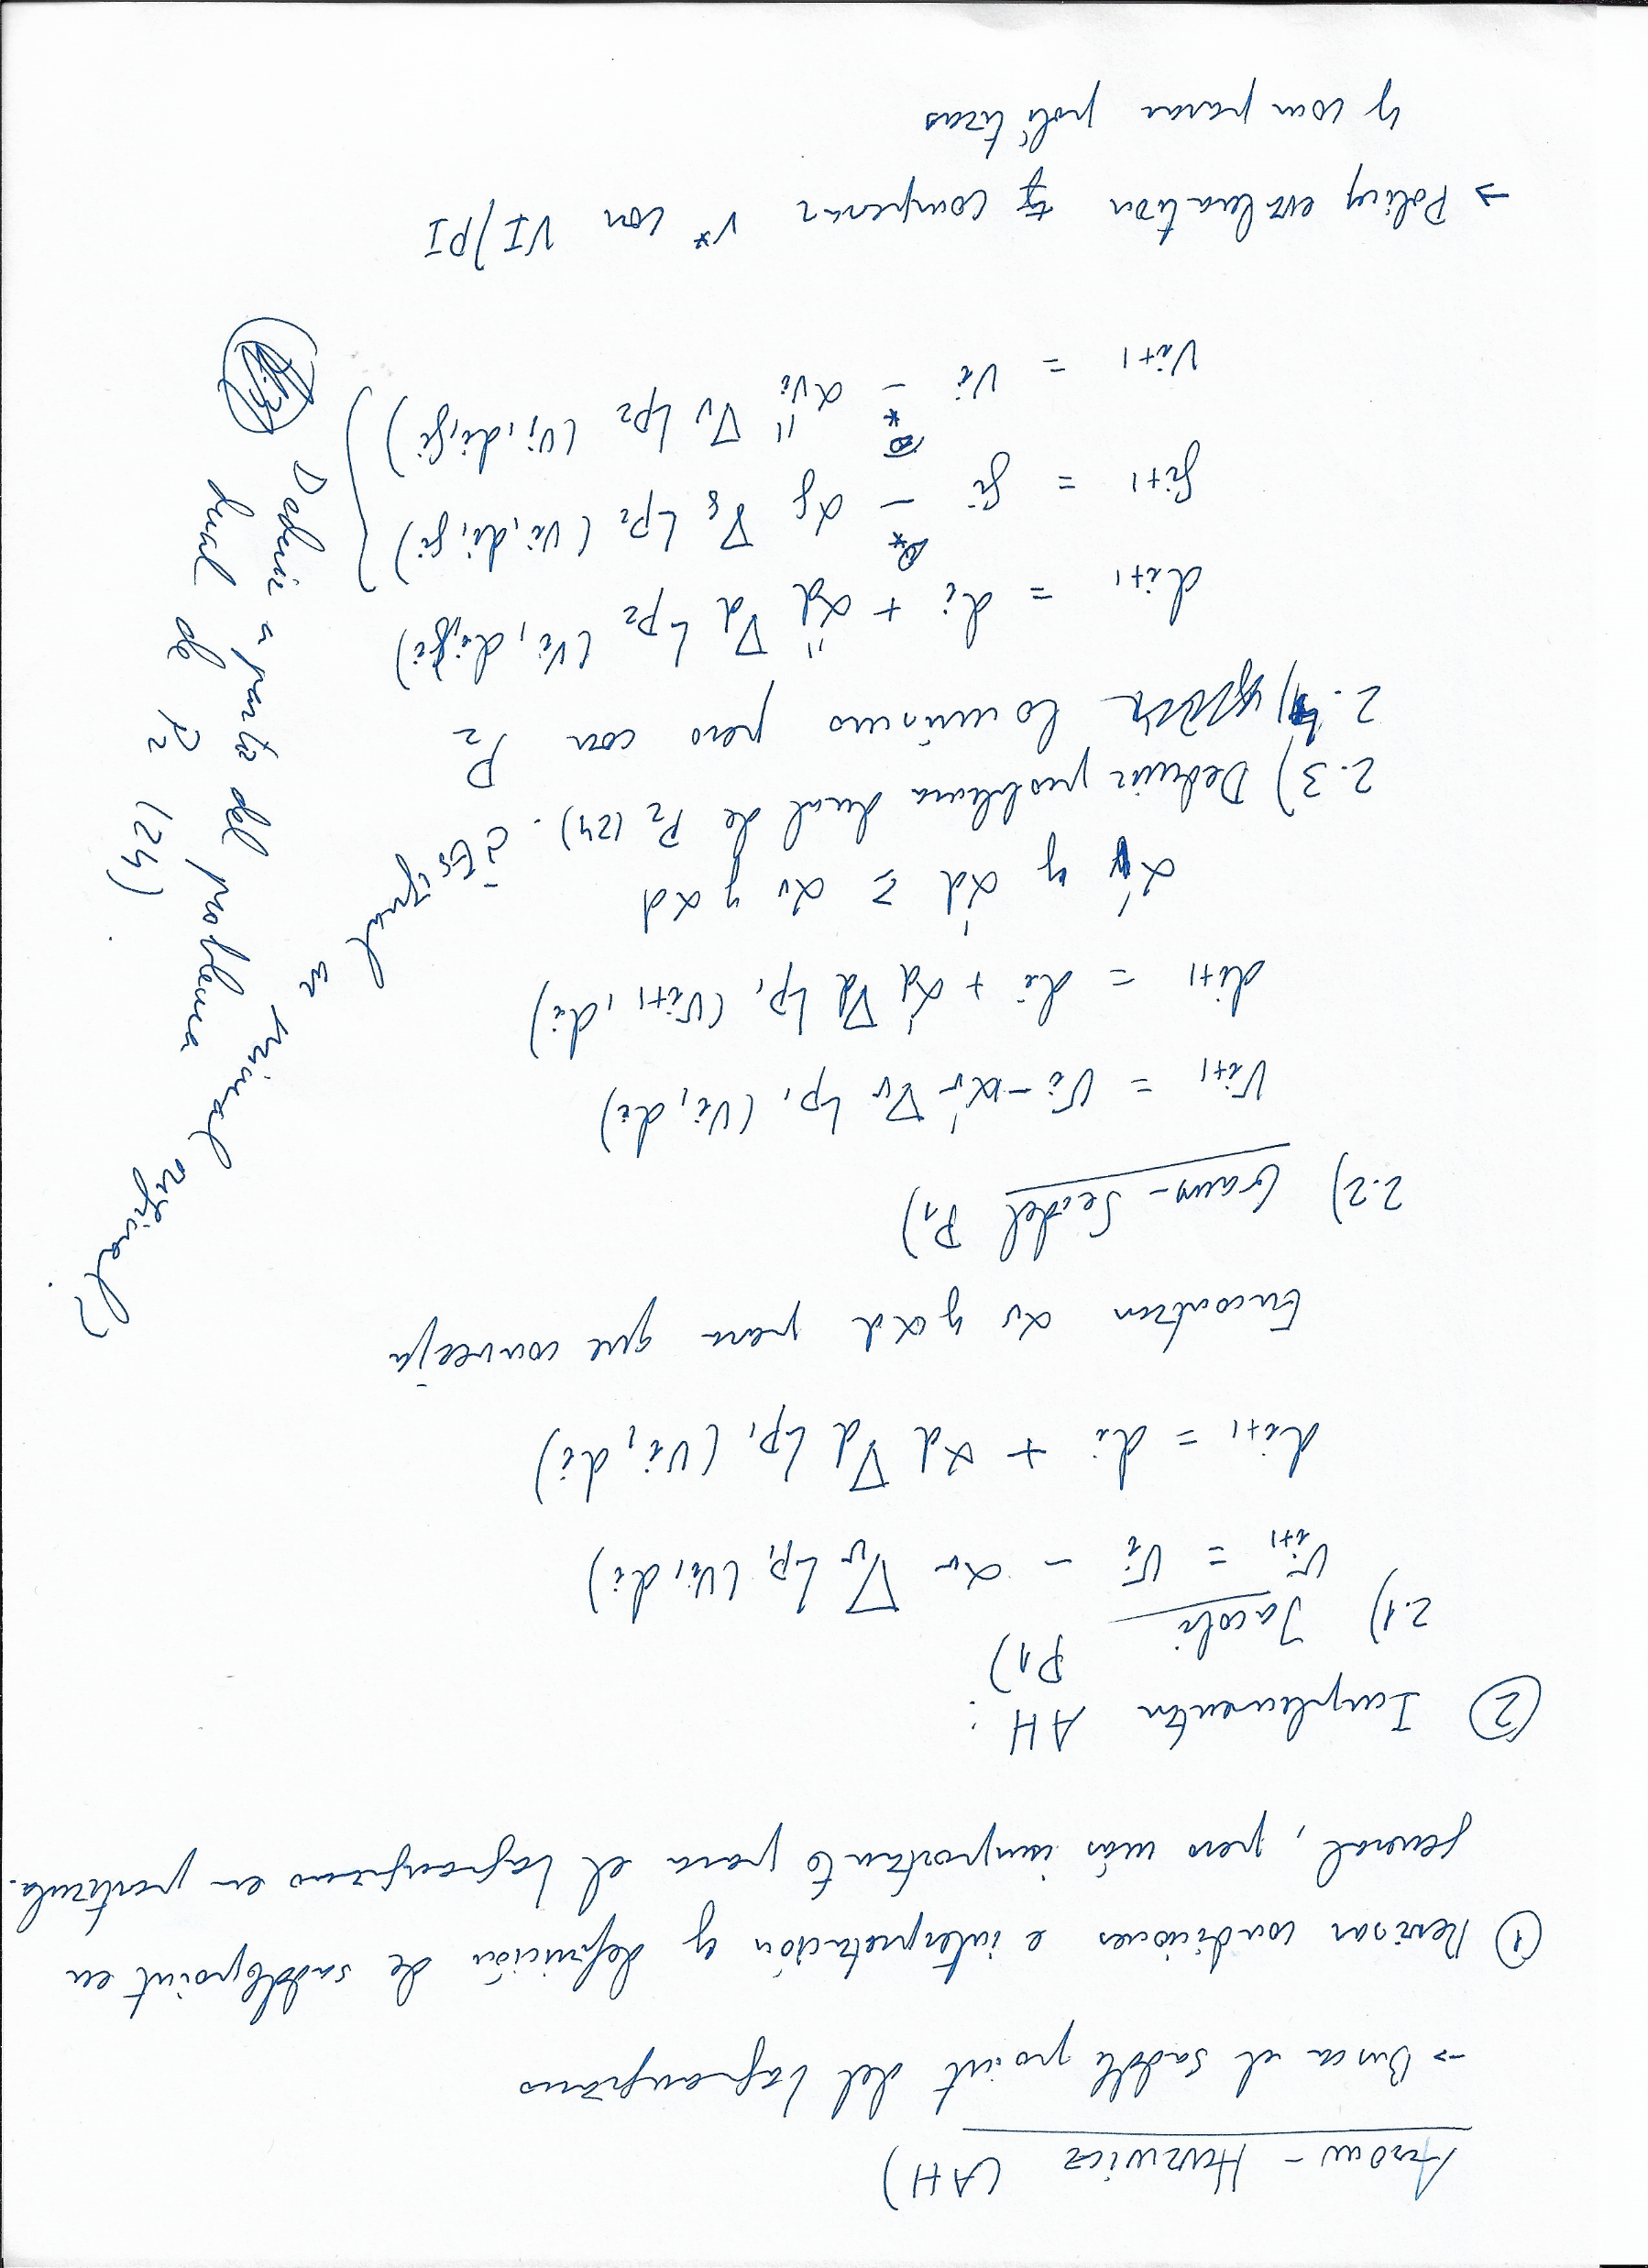 Arrow - Hurwicz (AH)
→ Busca el saddle point del Lagrangiano
① Revisar condiciones e interpretación y definición de saddlepoint en
general, pero más importante para el Lagrangiano en particular.
② Implementar AH:
2.1) Jacobi P1)
v_{i+1} = v_i - α_v ∇_v L_{P1} (v_i, d_i)
d_{i+1} = d_i + α_d ∇_d L_{P1} (v_i, d_i)
Encontrar α_v y α_d para que converja
2.2) Gauss-Seidel P1)
v_{i+1} = v_i - α'_v ∇_v L_{P1} (v_i, d_i)
d_{i+1} = d_i + α'_d ∇_d L_{P1} (v_{i+1}, d_i)
α'_v y α'_d ≥ α_v y α_d
2.3) Deducir problema dual de P2 (24). ¿Es igual al primal original?
2.4) lo mismo pero con P2
d_{i+1} = d_i + α''_d ∇_d L_{P2} (v_i, d_i, g_i)
g_{i+1} = g_i - α_g ∇_g L_{P2} (v_i, d_i, g_i)
v_{i+1} = v_i - α''_v ∇_v L_{P2} (v_i, d_i, g_i)
Deducir a partir del problema
dual de P2 (24)
→ Policy evaluation y comparar v* con VI/PI
y comparar políticas